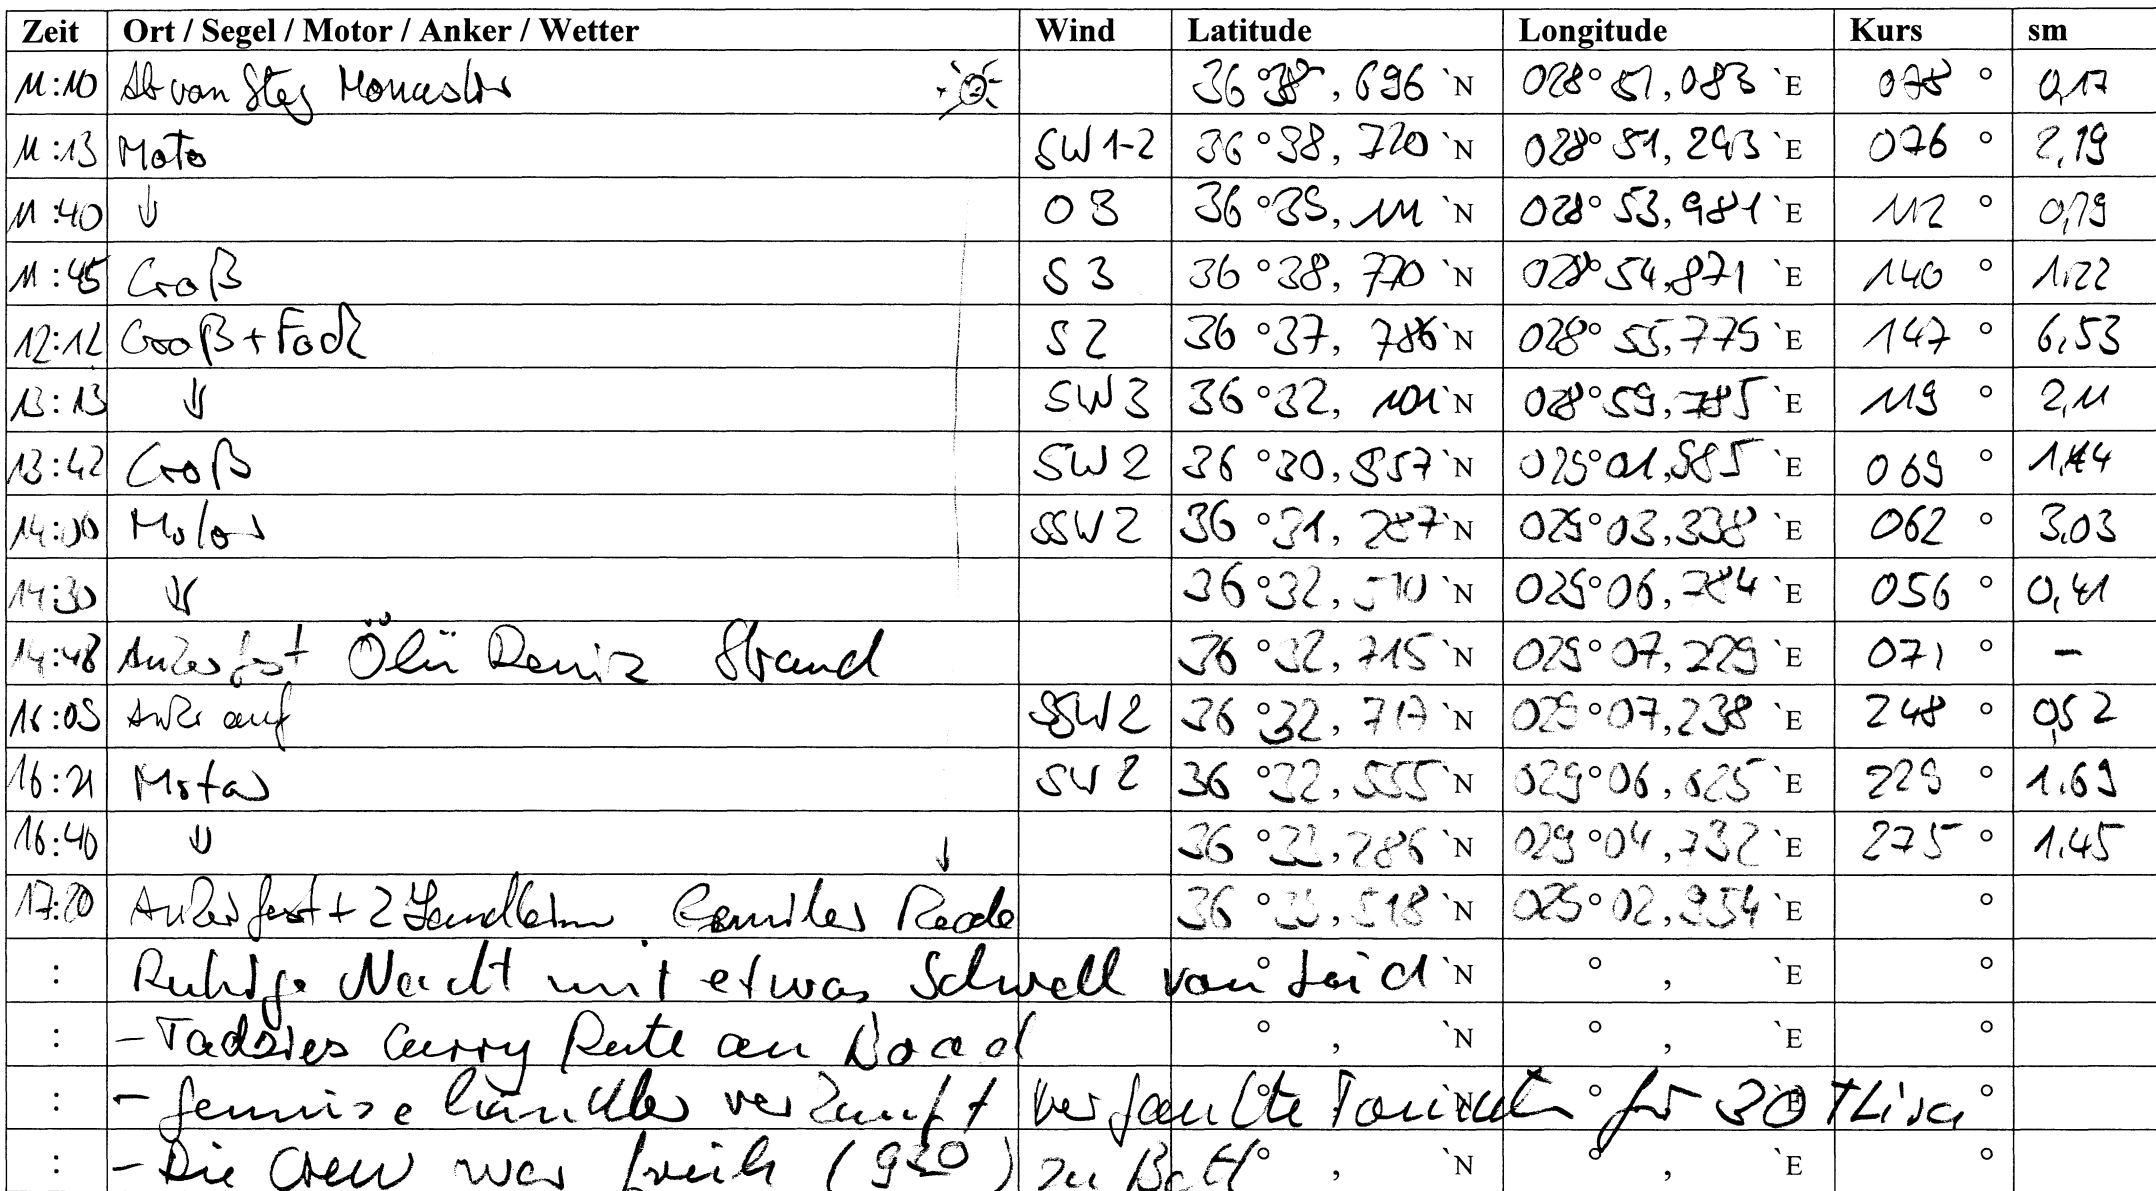 Zeit Ort / Segel / Motor / Anker / Wetter Wind Latitude Longitude Kurs sm
11:10 Ab von Steg Monastir 36°38,696`N 028°51,083`E 078° 0,17
11:13 Moto SW 1-2 36°38,720`N 028°51,293`E 076° 2,19
11:40 ↓ O 3 36°39,111`N 028°53,981`E 112° 0,79
11:45 Groß S 3 36°38,770`N 028°54,871`E 140° 1,22
12:12 Groß + Fock S 2 36°37,786`N 028°55,775`E 147° 6,53
13:13 ↓ SW 3 36°32,101`N 028°59,785`E 119° 2,11
13:42 Groß SW 2 36°30,957`N 029°01,985`E 069° 1,44
14:00 Motor SSW 2 36°31,287`N 029°03,338`E 062° 3,03
14:30 ↓ 36°32,510`N 029°06,784`E 056° 0,41
14:48 Anker fest Ölü Deniz Strand 36°32,715`N 029°07,229`E 071° –
16:05 Anker auf SSW 2 36°32,717`N 029°07,238`E 248° 0,52
16:21 Motor SW 2 36°32,555`N 029°06,625`E 229° 1.69
16:40 ↓ ↓ 36° `N 029°04,732`E 275° 1.45
17:20 Anker fest + 2 Landleinen Gemiler Reede 36° `N 029°02,954`E °
: Ruhige Nacht mit etwas Schwell von Süd °`N ° , `E °
: – Tadsies Curry Pute an Board ° , `N ° , `E °
: – Gemüsehändler verkauft verfaulte Tomaten für 30 TLira °
: – Die Crew war früh (930) zu Bett ° , `N ° , `E °